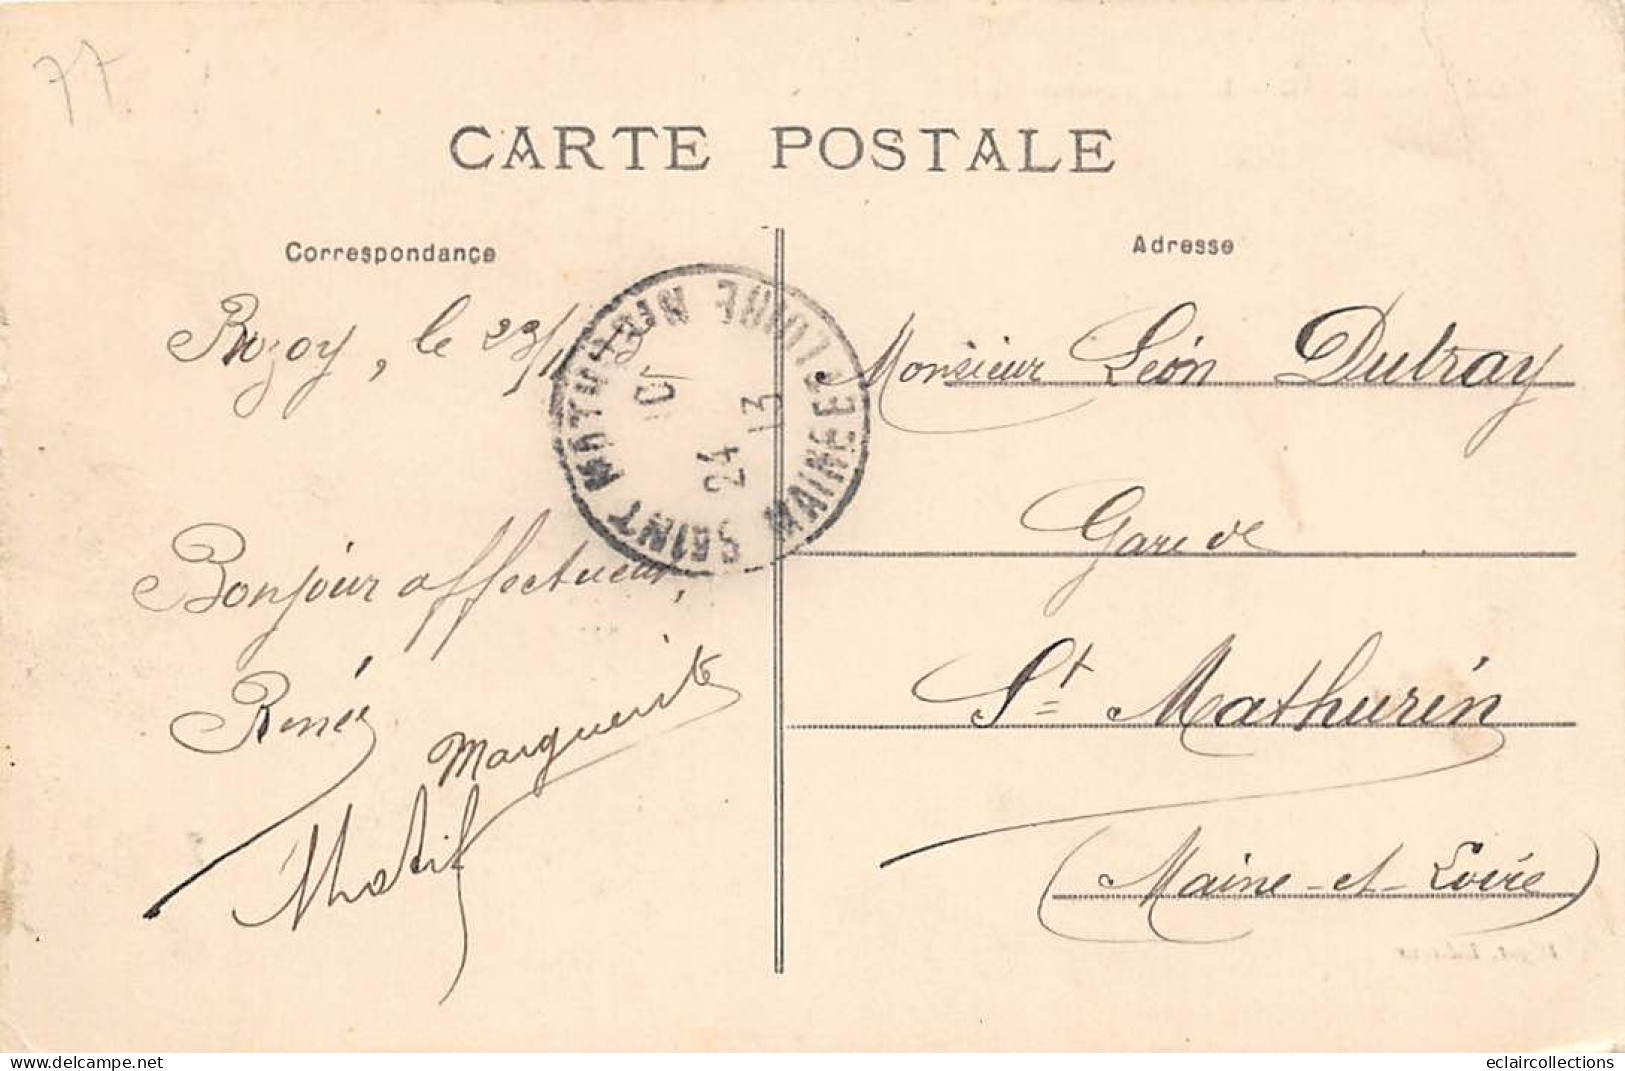 77
CARTE POSTALE
Correspondance
Rozoy, le 23/1
Bonjour affectueux,
Renée
Marguerite
Adresse
Monsieur Léon Dutray
Gare de
St Mathurin
(Maine-et-Loire)
SAINT MATHURIN MAINE ET LOIRE
10
24
13
delcampe.net
eclaircollections